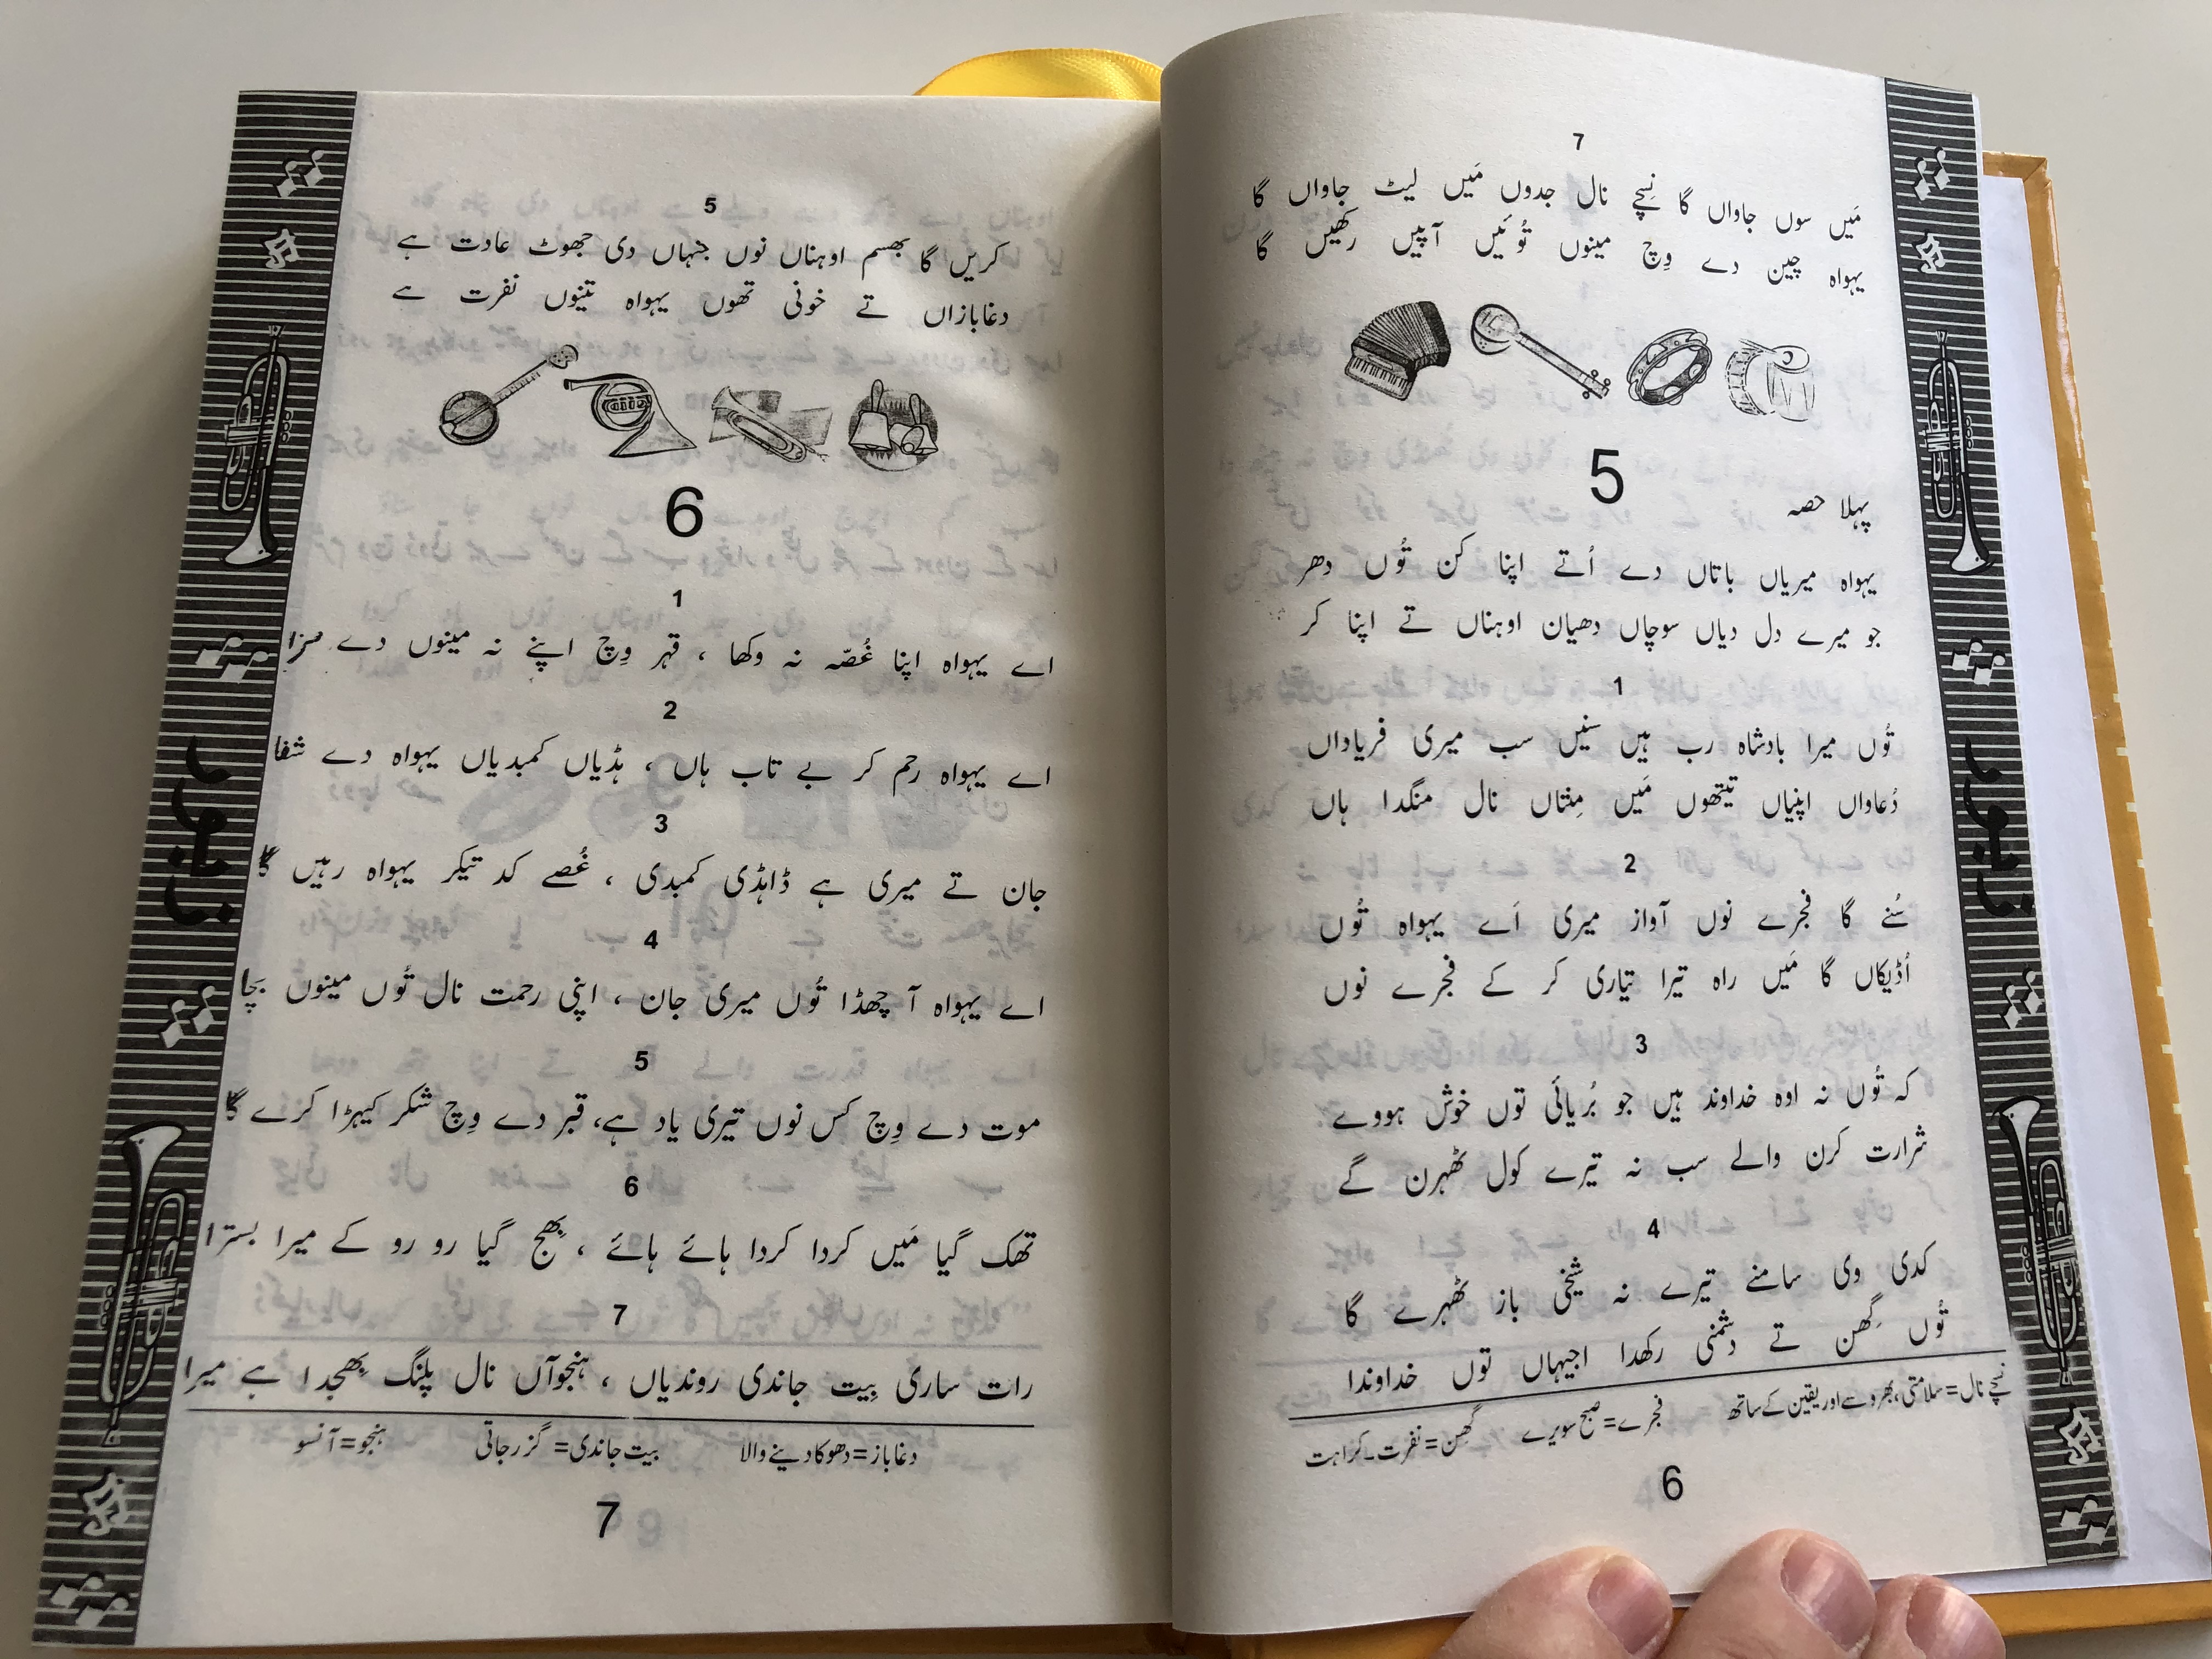 7
مَیں سوں جاواں گا نِچے نال جدوں مَیں لیٹ جاواں گا
یہواہ چین دے وِچ مینوں تُوئیں آپیں رکھیں گا
5
پہلا حصہ
یہواہ میریاں باتاں دے اُتے اپنا کن تُوں دھر
جو میرے دل دیاں سوچاں دھیان اوہناں تے اپنا کر
1
تُوں میرا بادشاہ رب ہیں سنیں سب میری فریاداں
دُعاواں اپنیاں تیتھوں مَیں مِنتاں نال منگدا ہاں
2
سُنے گا فجرے نوں آواز میری اَے یہواہ تُوں
اُڈیکاں گا مَیں راہ تیرا تیاری کر کے فجرے نوں
3
کہ تُوں نہ اوہ خداوند ہیں جو بُریائی توں خوش ہووے
شرارت کرن والے سب نہ تیرے کول ٹھہرن گے
4
کدی وی سامنے تیرے نہ شیخی باز ٹھہرے گا
تُوں گِھن تے دشمنی رکھدا اجیہاں توں خداوندا
نچے نال=سلامتی، بھروسے اور یقین کے ساتھ
فجرے=صبح سویرے
گِھن=نفرت۔کراہت
6
زبور
5
کریں گا بھسم اوہناں نوں جنہاں دی جھوٹ عادت ہے
دغابازاں تے خونی تھوں یہواہ تینوں نفرت ہے
6
1
اے یہواہ اپنا غُصّہ نہ وکھا ، قہر وِچ اپنے نہ مینوں دے سزا
2
اے یہواہ رحم کر بے تاب ہاں ، ہڈیاں کمبدیاں یہواہ دے شفا
3
جان تے میری ہے ڈاہڈی کمبدی ، غُصے کد تیکر یہواہ رہیں گا
4
اے یہواہ آ چھڈا تُوں میری جان ، اپنی رحمت نال تُوں مینوں بچا
5
موت دے وِچ کس نوں تیری یاد ہے، قبر دے وِچ شکر کیہڑا کرے گا
6
تھک گیا مَیں کردا کردا ہائے ہائے ، بِھج گیا رو رو کے میرا بسترا
7
رات ساری بِیت جاندی روندیاں ، ہنجوآں نال پلنگ بِھجدا ہے میرا
دغاباز=دھوکا دینے والا
بیت جاندی=گزر جاتی
ہنجو=آنسو
7
زبور